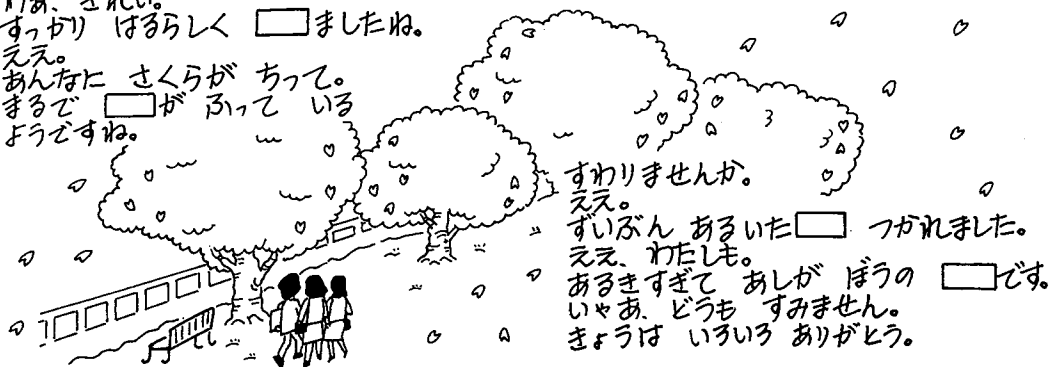 わあ、きれい。
すっかり はるらしく □ましたね。
ええ。
あんなに さくらが ちって。
まるで □が ふって いる
ようですね。
すわりませんか。
ええ。
ずいぶん あるいた□ つかれました。
ええ、わたしも。
あるきすぎて あしが ぼうの □です。
いやあ、どうも すみません。
きょうは いろいろ ありがとう。